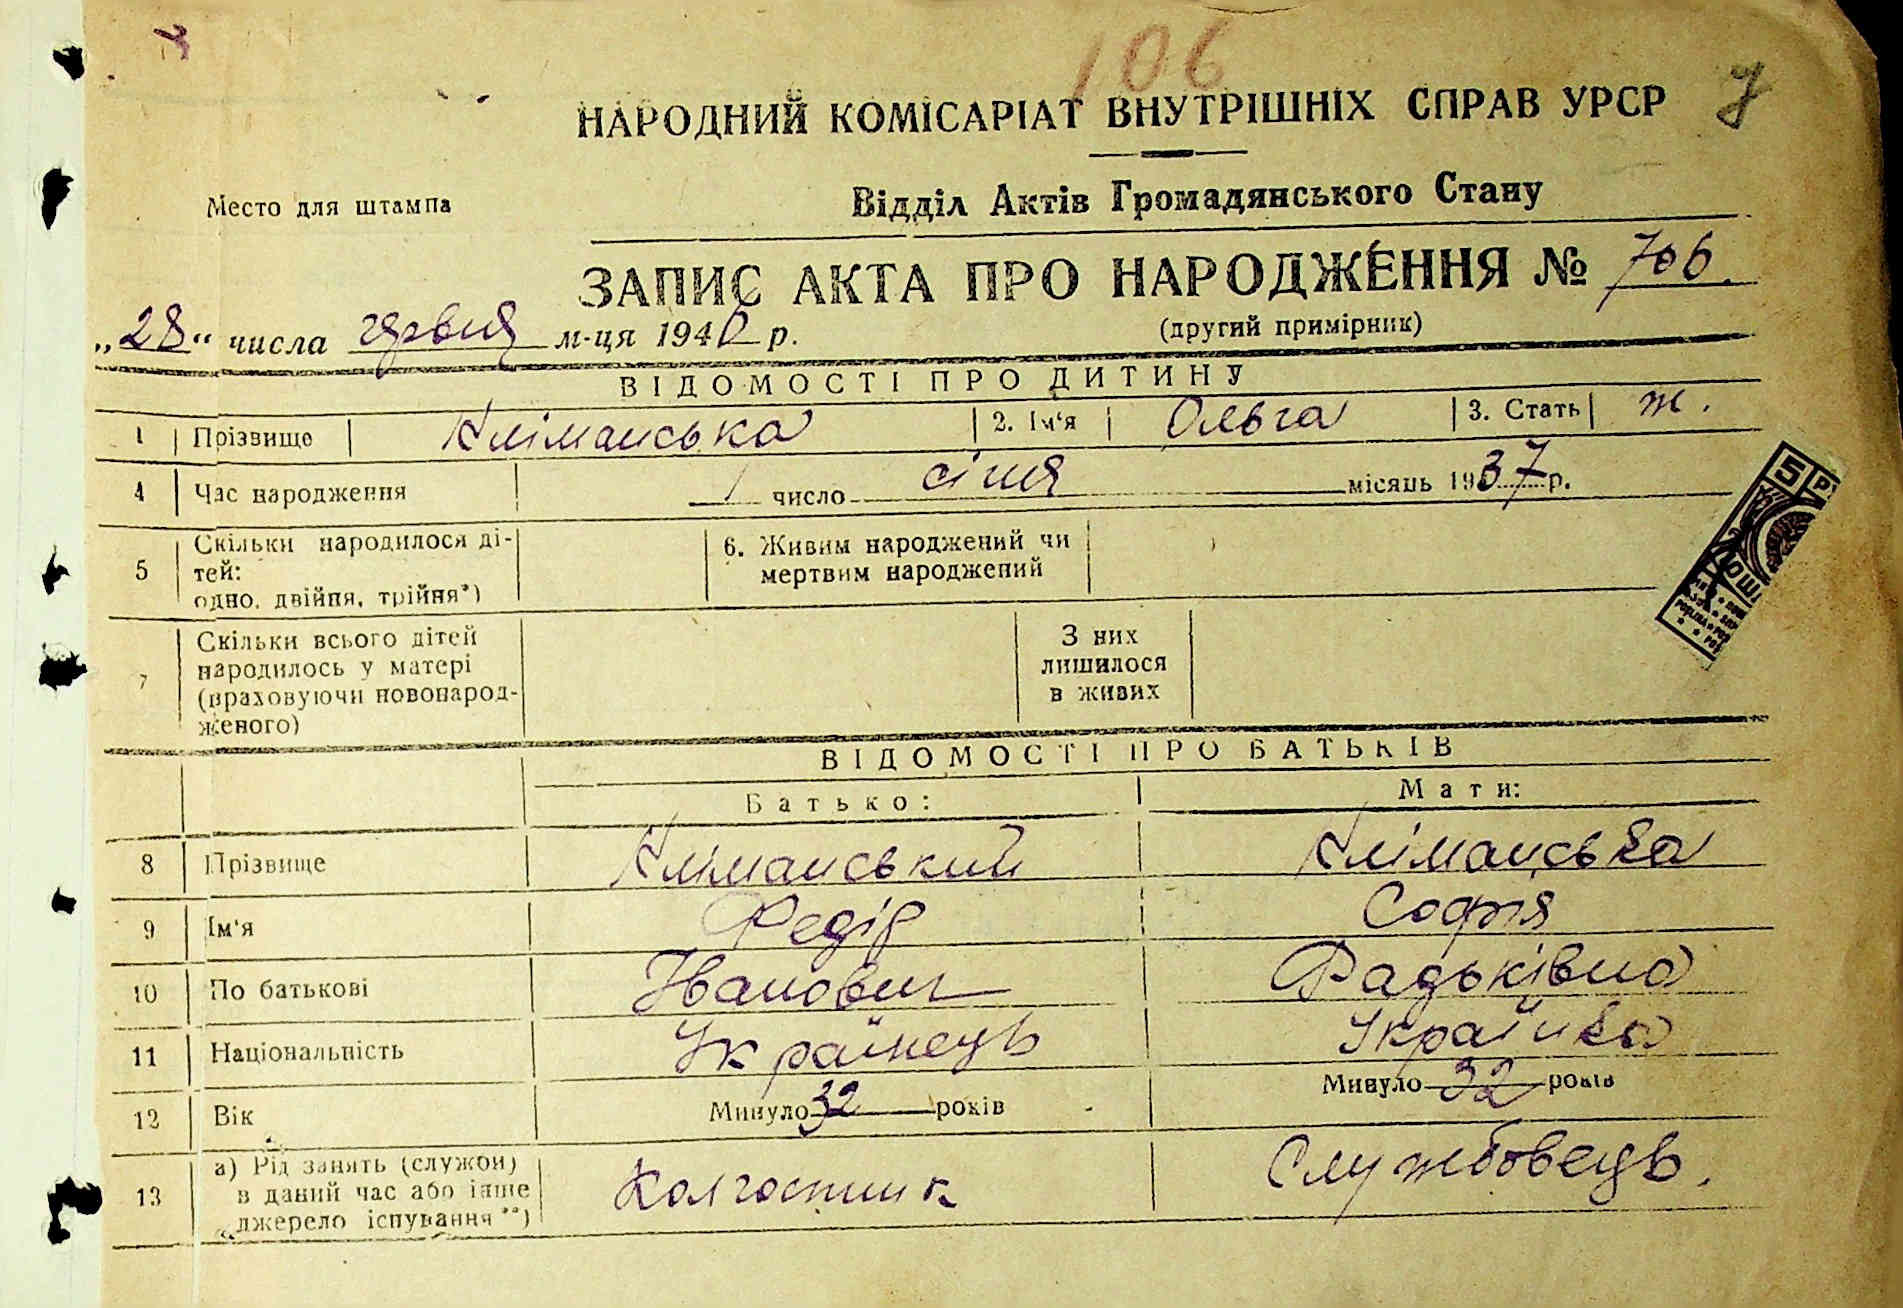 106
НАРОДНИЙ КОМІСАРІАТ ВНУТРІШНІХ СПРАВ УРСР
7
Место для штампа
Відділ Актів Громадянського Стану
ЗАПИС АКТА ПРО НАРОДЖЕННЯ № 706.
(другий примірник)
„28“ числа червня м-ця 1940 р.
ВІДОМОСТІ ПРО ДИТИНУ
1 Прізвище Кліманська 2. Ім‘я Ольга 3. Стать ж.
4 Час народження 1 число січня місяць 1937 р.
5 Скільки народилося ді-
тей:
одно, двійня, трійня*)
6. Живим народжений чи
мертвим народжений
7 Скільки всього дітей
народилось у матері
(враховуючи новонарод-
женого)
З них
лишилося
в живих
ВІДОМОСТІ ПРО БАТЬКІВ
Батько: Мати:
8 Прізвище Кліманський Кліманська
9 Ім‘я Федір Софія
10 По батькові Іванович Фадьківна
11 Національність Українець Українка
12 Вік Минуло 32 років Минуло 32 років
13 а) Рід занять (служби)
в даний час або інше
джерело існування**)
Колгоспник Службовець.
5